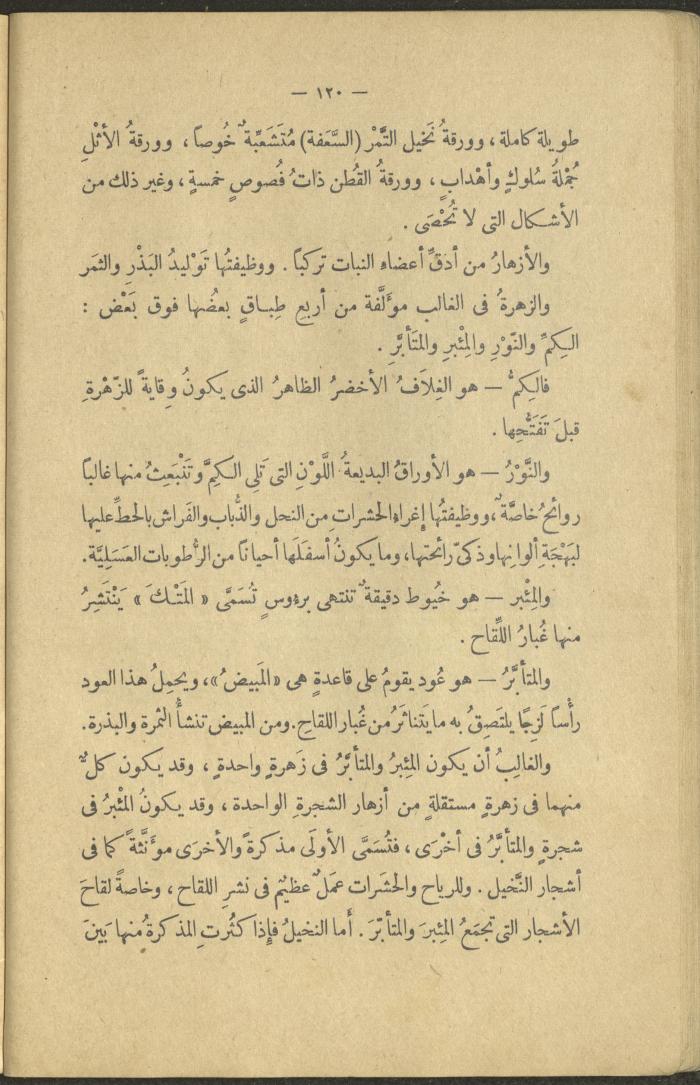 — ١٢٠ —
طويلة كاملة ، وورقةُ نَخيل التَّمْر (السَّعَفة) مُتَشَعِّبةٌ خُوصاً ، وورقةُ الأثْلِ
جُمْلةُ سُلوكٍ وأهْدابٍ ، وورقةُ القُطن ذاتُ فُصوصٍ خمسةٍ ، وغير ذلك من
الأشكال التى لا تُحْصَى .
والأزهارُ من أدَقِّ أعضاءِ النبات تركباً . ووظيفتُها تَوْليدُ البَذْرِ والثمَر
والزهرةُ فى الغالب مؤلَّفة من أربع طِباقٍ بعضُها فوق بَعْض :
الكِمِّ والنَّوْرِ والمِئْبرِ والمتَأبَّرِ .
فالكِمُّ — هو الغِلاَفُ الأخضرُ الظاهرُ الذى يكونُ وِقايةً للزَّهْرةِ
قبلَ تَفَتُّحها .
والنَّوْرُ — هو الأوراقُ البديعةُ اللَّوْنِ التى تَلِى الكِمَّ وتَنْبَعِثُ منها غالباً
روائحُ خاصَّةٌ ، ووظيفتُها إغراءُ الحشراتِ من النحل والذُّباب والفَراش بالحطِّ عليها
لبَهْجَةِ ألوانها وذكىّ رائحتها، وما يكونُ أسفلَها أحياناً من الرُّطوبات العَسَليَّة.
والمِئْبر — هو خُيوط دقيقةٌ تنتهى برءوسٍ تُسَمَّى « المَتْكَ » يَنْتَشِرُ
منها غُبارُ اللِّقاح .
والمتأبَّرُ — هو عُود يقومُ على قاعدةٍ هى «المَبيضُ»، ويحمِلُ هذا العود
رأْساً لَزِجًا يلتَصِقُ به ما يَتناثَرُ من غُبار اللقاح. ومن المبيض تنشأُ الثمرة والبذرة.
والغالِبُ أن يكون المِئبرُ والمتأبَّرُ فى زَهرةٍ واحدةٍ ، وقد يكون كلٌّ
منهما فى زهرةٍ مستقلةٍ من أزهار الشجرةِ الواحدة ، وقد يكونُ المِئْبرُ فى
شجرةٍ والمتأبَّرُ فى أخْرَى ، فتُسَمَّى الأولَى مذكرةً والأخرَى مؤنَّثةً كما فى
أشجار النَّخيل . وللرياح والحشَرات عمَلٌ عظيمٌ فى نشرِ اللقاح ، وخاصةً لقاحَ
الأشجار التى تجمَعُ المِئبرَ والمتأبّرَ . أما النخيلُ فإذا كثُرت المذكرةُ منها بَينَ